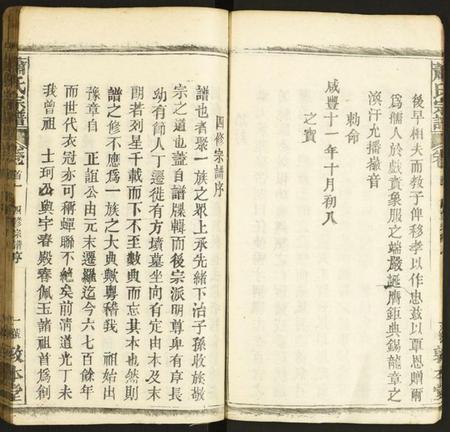 後早相夫而教子俾移孝以作忠玆以覃恩贈爾
為孺人於戲賁象服之端嚴誕膺鉅典錫龍章之
渙汗允播徽音
敕命
咸豐十一年十月初八
之寶
四修宗譜序
譜也者聚一族之眾上承先緒下治子孫收族敬
宗之道也蓋自譜牒輯而後宗派明尊卑有序長
幼有節人丁遷徙有方墳墓坐向有定由本及末
朗若列星千載而下不至數典而忘其本也然則
譜之修不應為一族之大典歟粵稽我 祖始出
豫章自 正誼公由元末遷羅迄今六七百餘年
而世代衣冠亦可稱蟬聯不絕矣前清道光丁未
我曾祖 士珂公與宇春殿春佩玉諸祖首為創
蕭氏宗譜
卷首
四修宗譜序
一
敦本堂
蕭氏宗譜
敦本堂